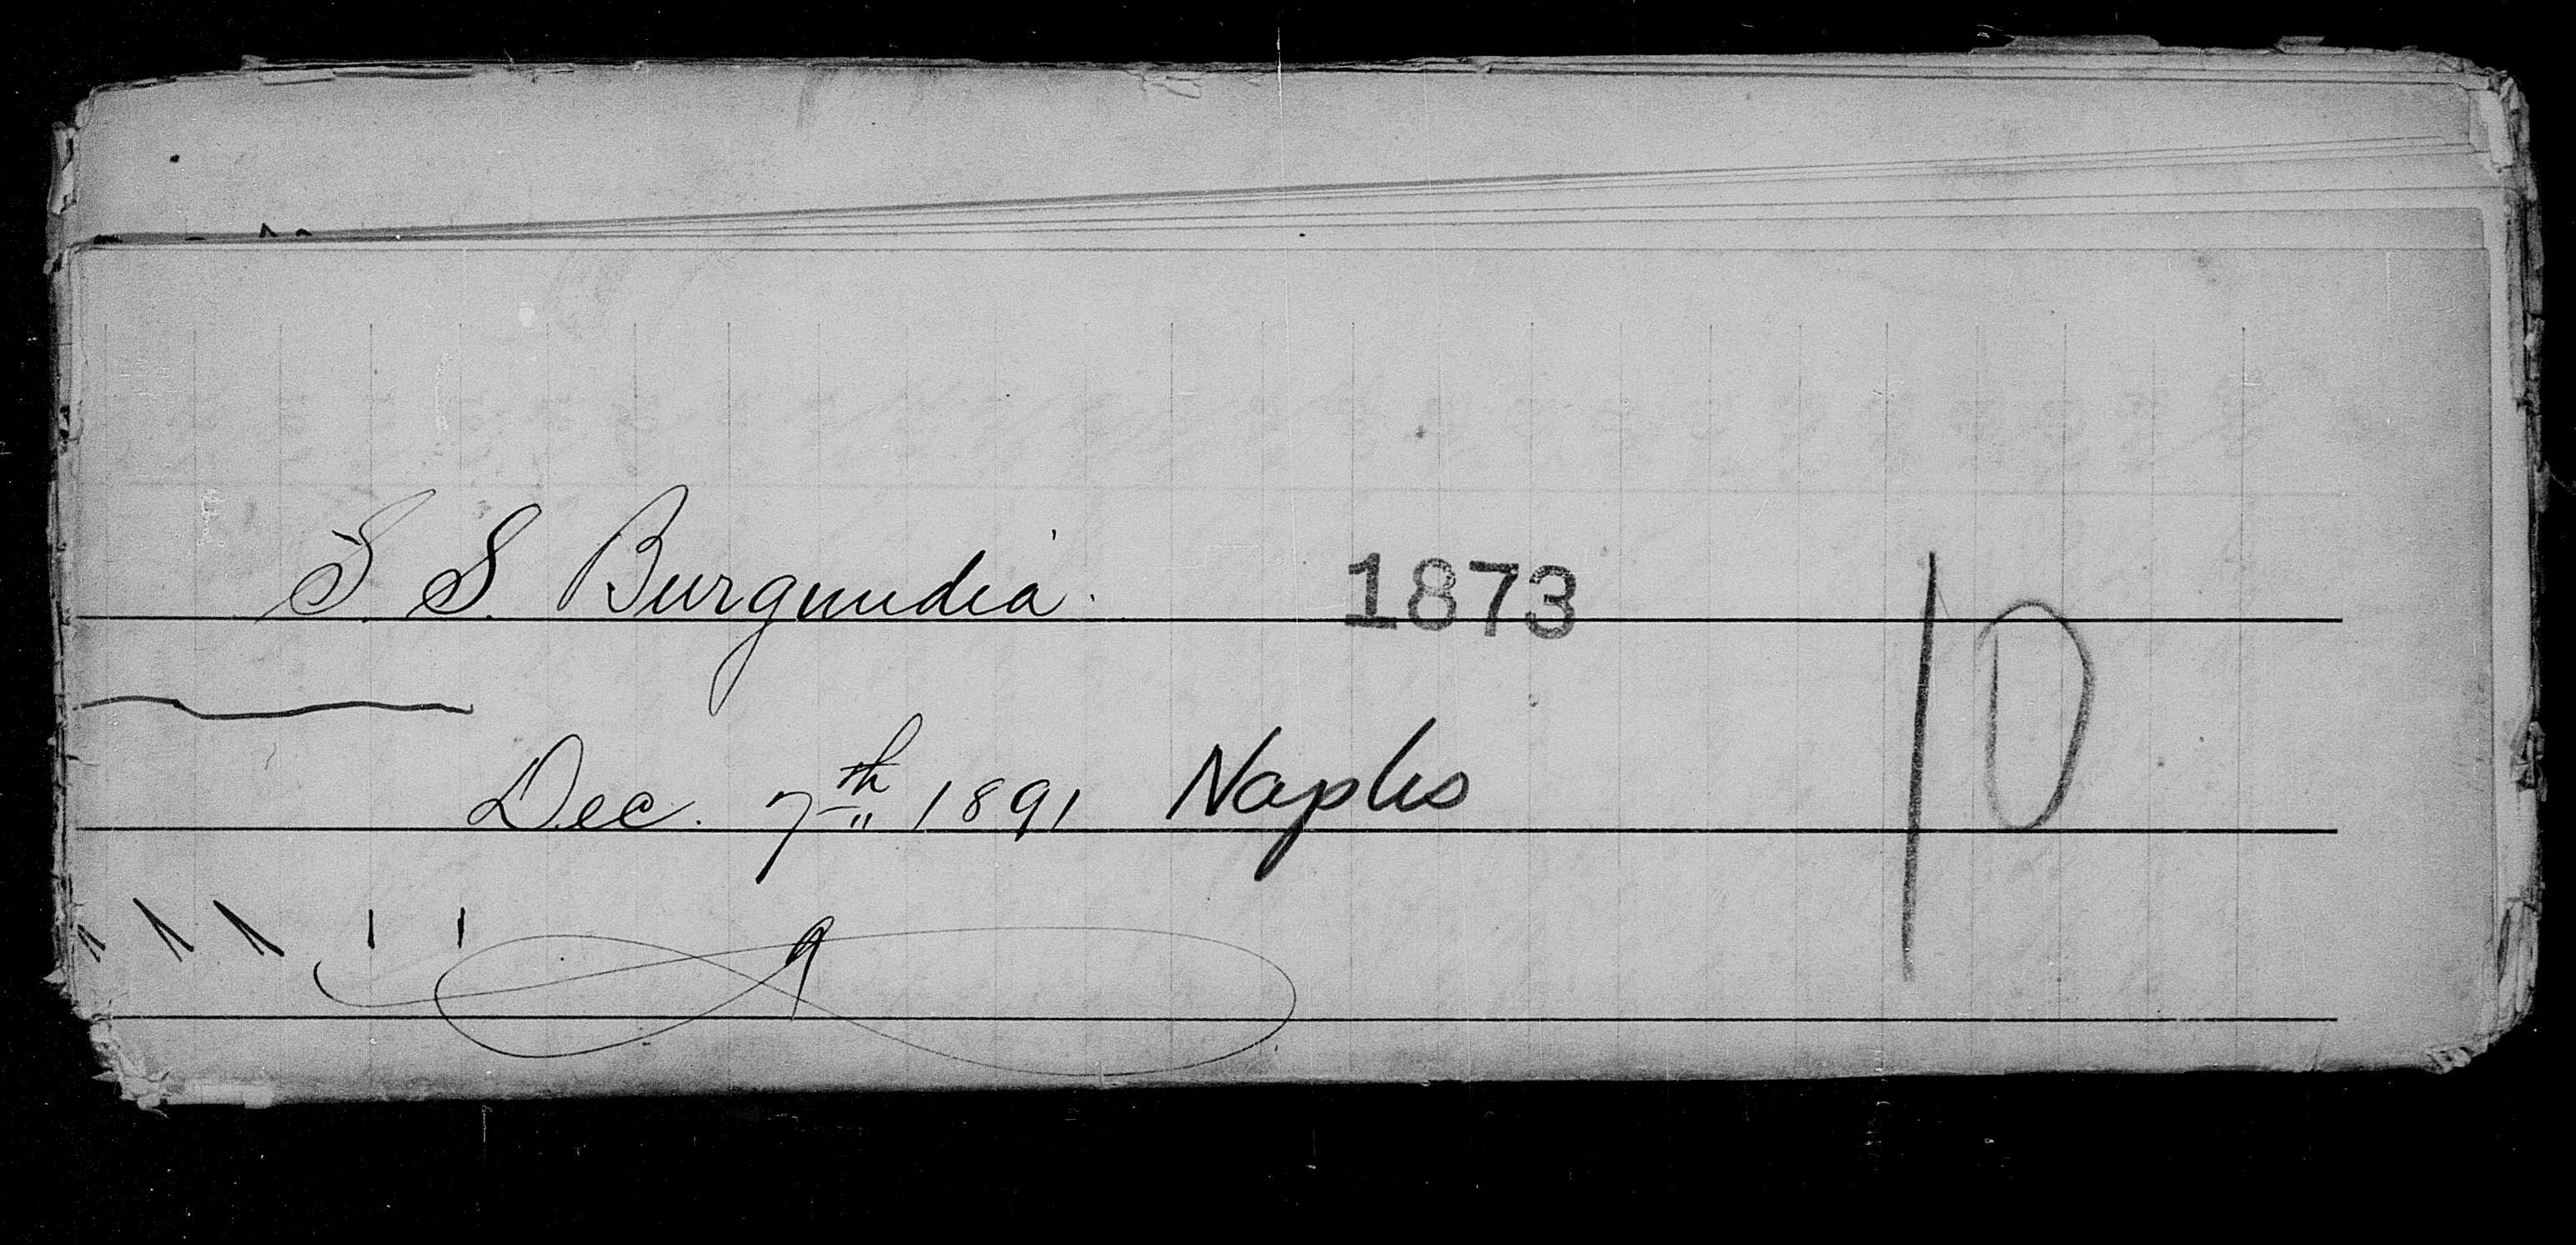 S. S. Burgundia. 1873
10
Dec. 7th 1891 Naples